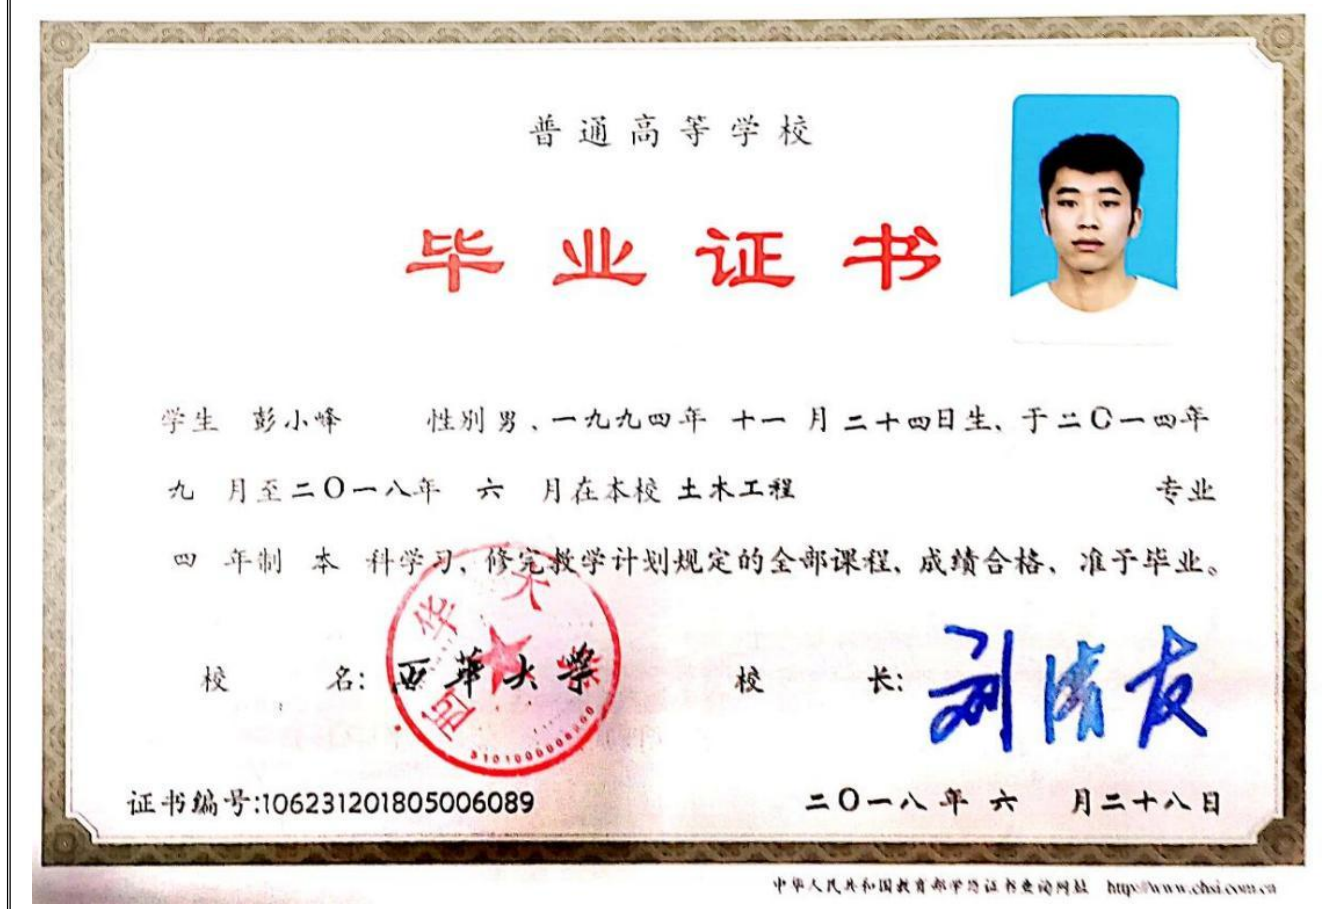 普通高等学校
毕业证书
学生 彭小峰 性别男、一九九四年 十一 月二十四日生、于二〇一四年
九 月至二〇一八年 六 月在本校 土木工程 专业
四 年制 本 科学习、修完教学计划规定的全部课程、成绩合格、准予毕业。
西华大学
校 名: 西华大学 校 长: 刘清友
证书编号:106231201805006089 二〇一八年 六 月二十八日
中华人民共和国教育部学历证书查询网址 http://www.chsi.com.cn